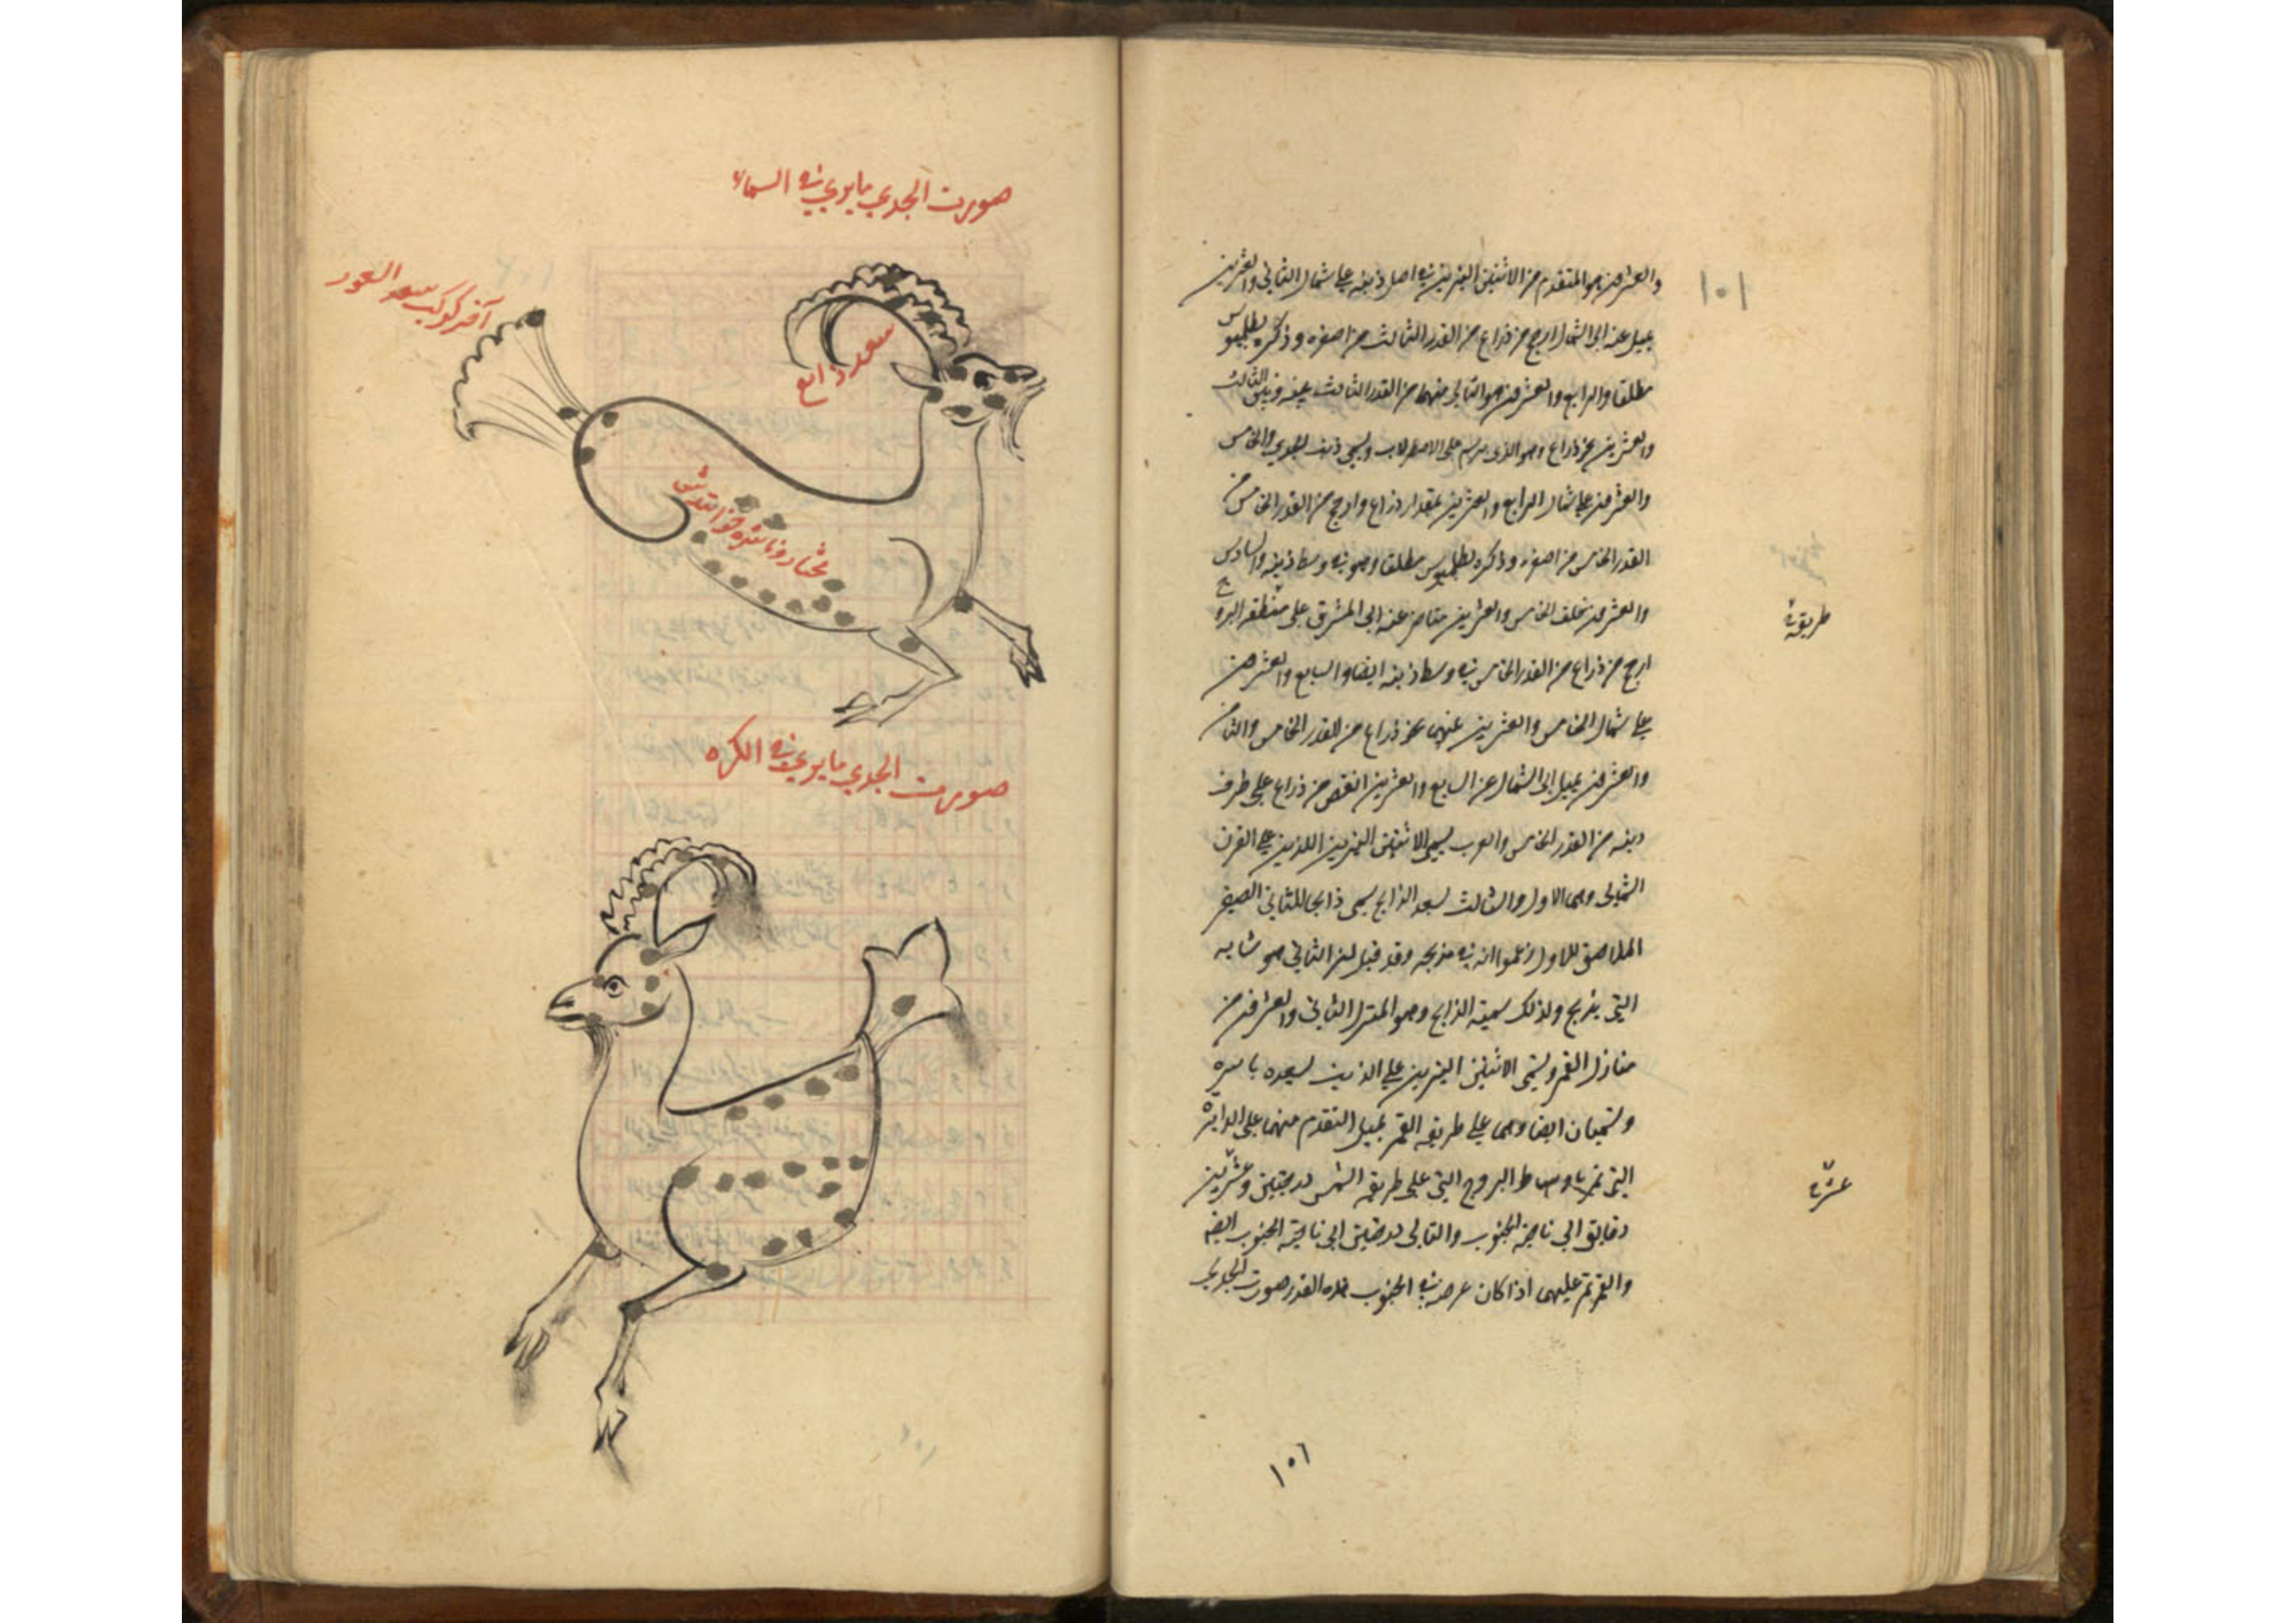 ١٠١
والعشرون هو المتقدم من الاثنين النيرين في اصل ذنبه على شمال الثاني والعشرين
يميل عنه الى الشمال ارجح من ذراع من القدر الثالث من اصغره وذكره بطلميوس
مطلقا والرابع والعشرون هو التالي منهما من القدر الثالث بينه وبين الثالث
والعشرين نحو ذراع وهو الذي يرسم على الاصطرلاب ويسمى ذنب الجدي والخامس
والعشرون على شمال الرابع والعشرين بمقدار ذراع وارجح من القدر الخامس من
القدر الخامس من اصغره وذكره بطلميوس مطلقا وهو في وسط ذنبه والسادس
والعشرون خلف الخامس والعشرين عنه الى المشرق على منطقة البروج
طريقة
ارجح من ذراع من القدر الخامس في وسط ذنبه ايضا والسابع والعشرون
على شمال الخامس والعشرين عنهما نحو ذراع من القدر الخامس والثامن
والعشرون يميل الى الشمال عن السابع والعشرين انقص من ذراع على طرف
ذنبه من القدر الخامس والعرب يسمي الاثنين النيرين اللذين على القرن
الشمالي وهما الاول والثالث سعد الذابح يسمى ذابحا للثاني الصغير
الملاصق للاول زعموا انه في مذبحه وقد قيل ان الثاني هو شاته
التي يذبح ولذلك سميته الذابح وهو المنزل الثاني والعشرون من
منازل القمر ويسمى الاثنين النيرين على الذنب لسعده باسره
وتسميان ايضا وهما على طريقة القمر يميل المتقدم منهما على الدايرة
التي تمر باوساط البروج التي على طريقة الشمس درجتين وعشرين
عشرة
دقايق الى ناحية الجنوب والتالي درجتين الى ناحية الجنوب ايضه
والقمر يمر عليهما اذا كان عرضه في الجنوب هذه القدر صورت الجدي
١٠٦
صورت الجدي ما يري في السماء
آخر كوكب سعد السعود
سعد ذابح
صورت الجدي ما يري في الكره